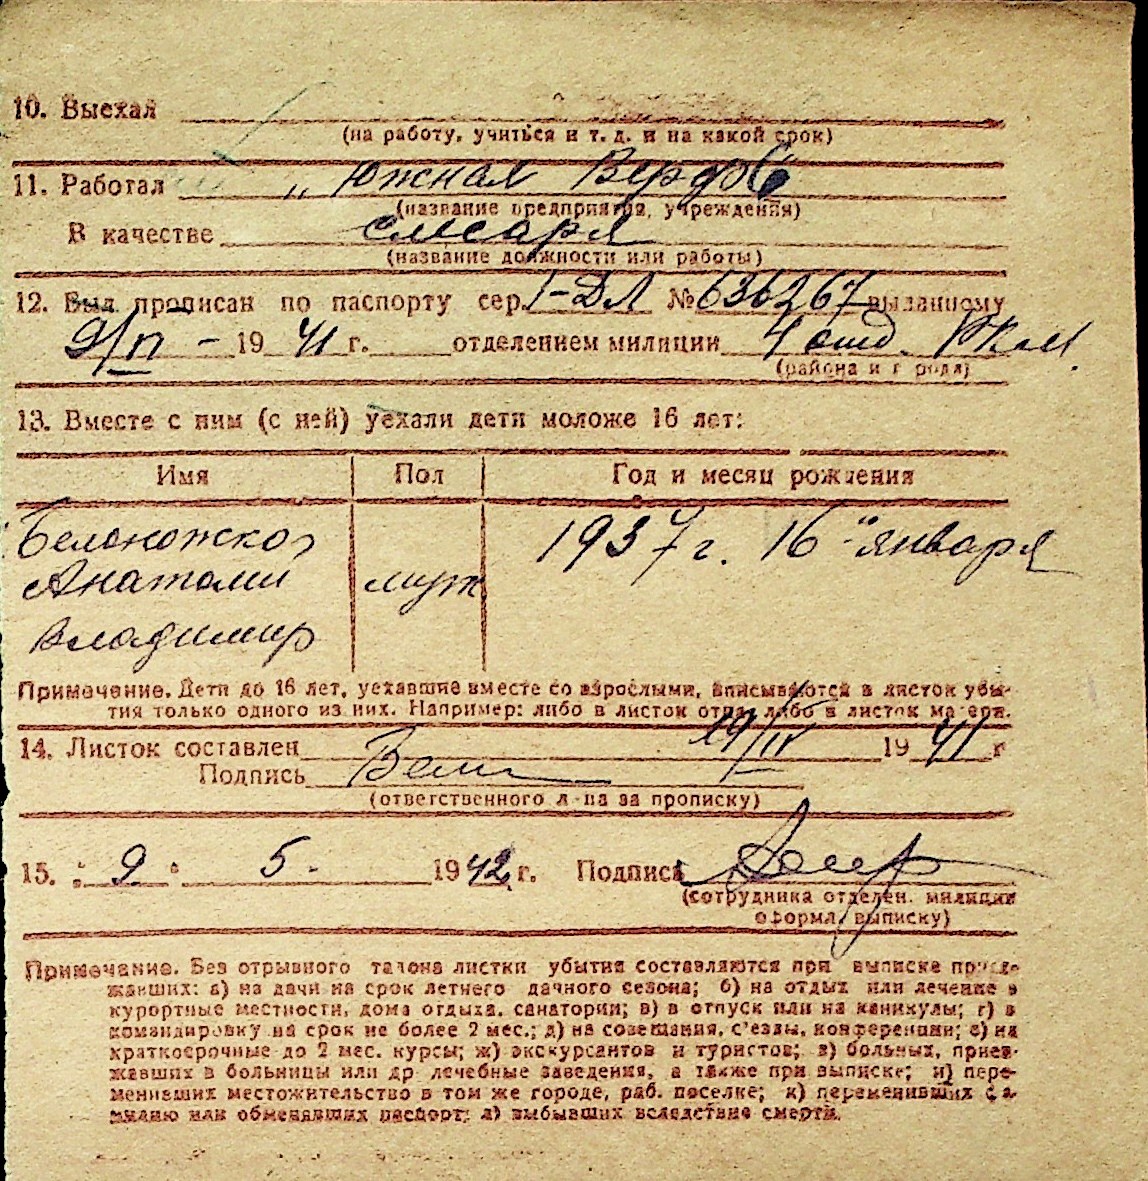 10. Выехал
(на работу, учиться и т. д. и на какой срок)
11. Работал „Южная Верфь"
(название предприятия, учреждения)
В качестве слесаря
(название должности или работы)
12. Был прописан по паспорту сер. I-ДЛ № 636267 выданному
9/IV - 1941 г. отделением милиции 4 отд. РКМ
(района и города)
13. Вместе с ним (с ней) уехали дети моложе 16 лет:
Имя Пол Год и месяц рождения
1937 г. 16 января
Анатоли муж
Владимир
Примечание. Дети до 16 лет, уехавшие вместе со взрослыми, вписываются в листок убы-
тия только одного из них. Например: либо в листок отца, либо в листок матери.
14. Листок составлен 19/IV 1941 г
Подпись
(ответственного л-ца за прописку)
15. „9" 5. 1942 г. Подпись
(сотрудника отделен. милиции
оформл. выписку)
Примечание. Без отрывного талона листки убытия составляются при выписке приез-
жавших: а) на дачи на срок летнего дачного сезона; б) на отдых или лечение в
курортные местности, дома отдыха, санатории; в) в отпуск или на каникулы; г) в
командировку на срок не более 2 мес.; д) на совещания, с'езды, конференции; е) на
краткосрочные до 2 мес. курсы; ж) экскурсантов и туристов; з) больных, приез-
жавших в больницы или др лечебные заведения, а также при выписке; и) пере-
менивших местожительство в том же городе, раб. поселке; к) переменивших фа-
милию или обменявших паспорт; л) выбывших вследствие смерти.